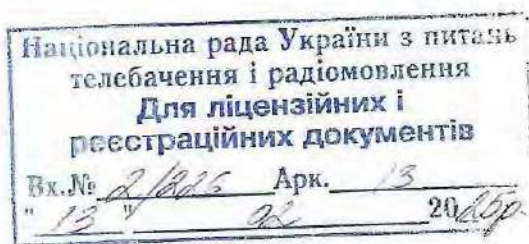 Національна рада України з питань
телебачення і радіомовлення
Для ліцензійних і
реєстраційних документів
Вх.№ 2/226 Арк. 13
"13" 02 2025р.